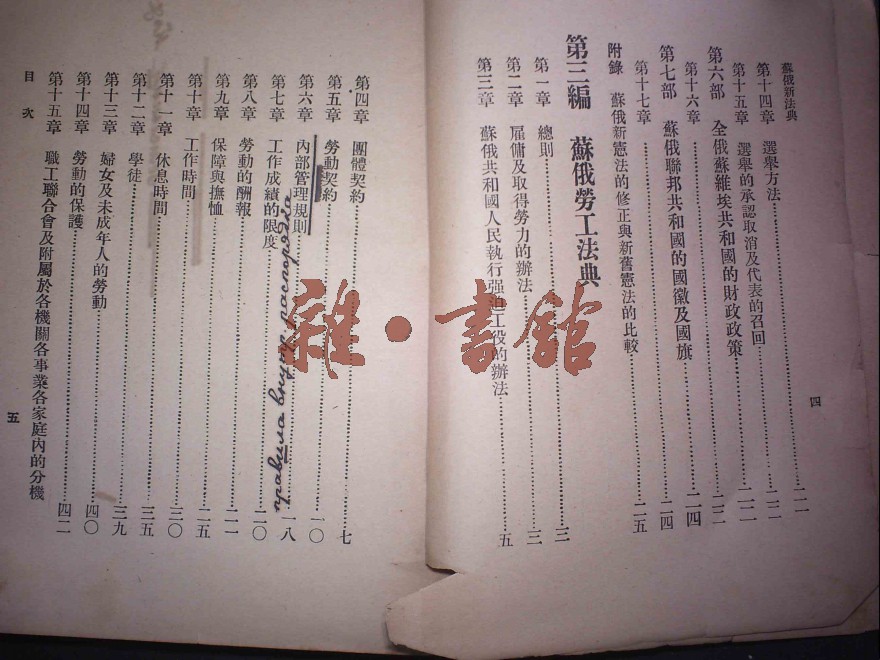 蘇俄新法典
第十四章 選舉方法……二一
第十五章 選舉的承認取消及代表的召回……二二
第六部 全俄蘇維埃共和國的財政政策……二三
第十六章……二四
第七部 蘇俄聯邦共和國的國徽及國旗……二四
第十七章……二五
附錄 蘇俄新憲法的修正與新舊憲法的比較
第三編 蘇俄勞工法典
第一章 總則……三
第二章 雇傭及取得勞力的辦法……三
第三章 蘇俄共和國人民執行强迫工役的辦法……五
四
第四章 團體契約……七
第五章 勞動契約……一〇
第六章 內部管理規則……一八
правила внутр. распорядка
第七章 工作成績的限度……二〇
第八章 勞動的酬報……二一
第九章 保障與撫恤……二五
第十章 工作時間……三〇
第十一章 休息時間……三五
第十二章 學徒……三九
第十三章 婦女及未成年人的勞動……四〇
第十四章 勞動的保護……四二
第十五章 職工聯合會及附屬於各機關各事業各家庭內的分機
目次
五
雜·書館